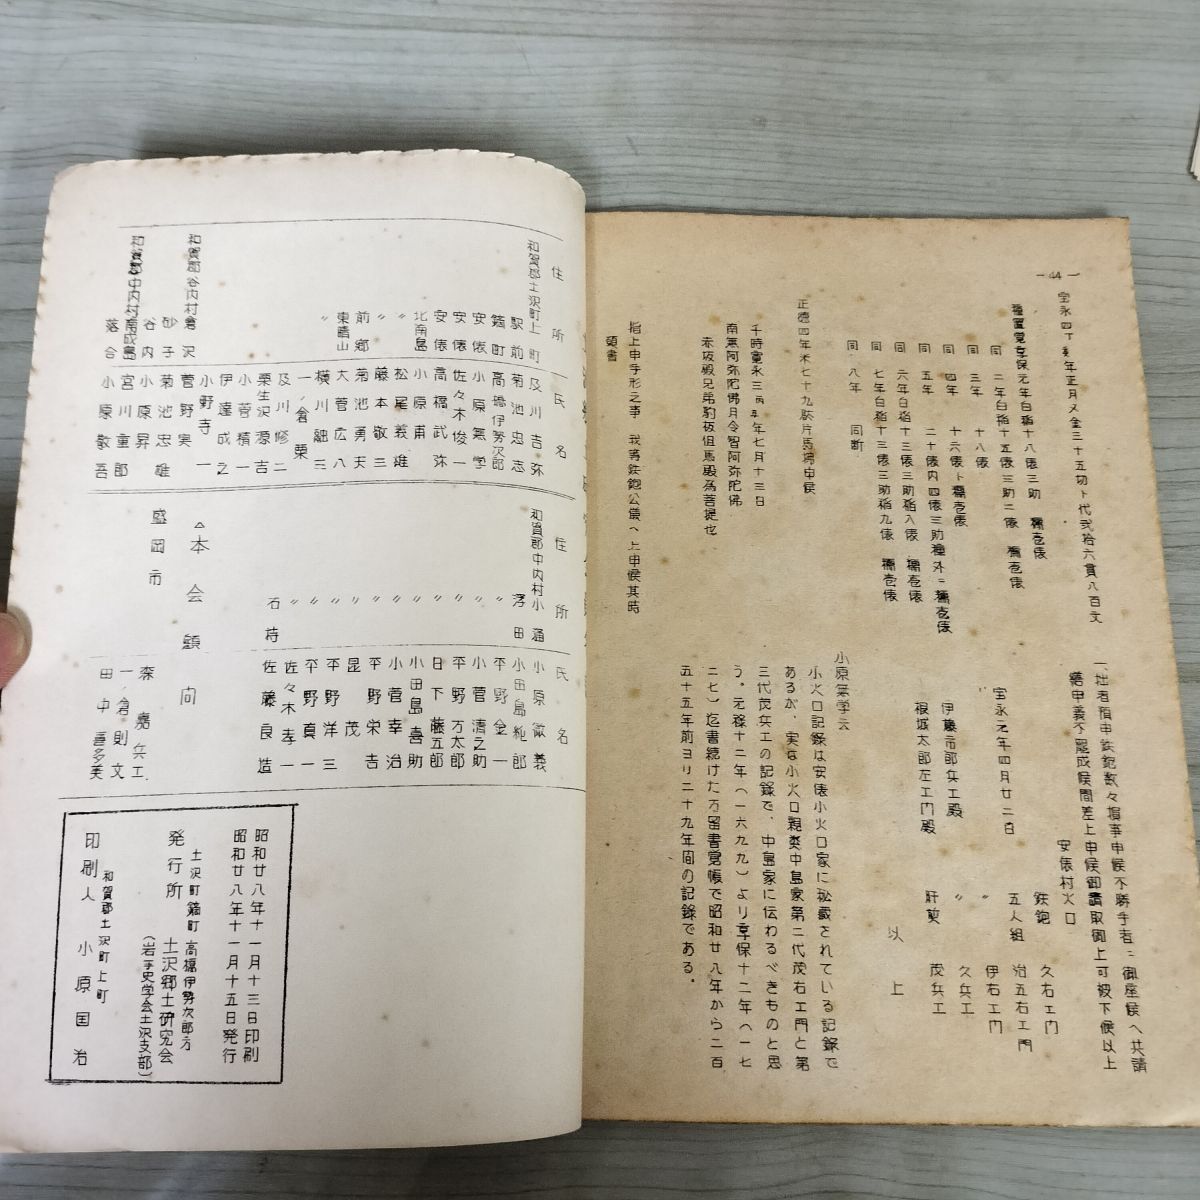 一44一
宝永四丁亥年正月〆金三十五切ト代弐拾六貫八百文
種置覚享保元年白稲十八俵三助 糯壱俵
同 二年白稲十五俵三助二俵 糯壱俵
同 三年 十八俵
同 四年 十六俵ト糯壱俵
同 五年 二十俵内四俵三助種外ニ糯壱俵
同 六年白稲十三俵三助稲八俵 糯壱俵
同 七年白稲十三俵三助稲九俵 糯壱俵
同 八年 同断
正徳四年未七十九
千時宝永三丙戌年七月十三日
南無阿弥陀佛月令智阿弥陀佛
赤坂殿兄弟
指上申手形之事 我等鉄砲公儀へ上申候其時
領書
一、拙者預申鉄砲数々損事申候不勝手者ニ御座候へ共請
繕申義不罷成候間差上申候御請取御上可被下候以上
安俵村火口
鉄砲 久右エ門
五人組 治五右エ門
〃 伊右エ門
〃 久兵工
肝煎 茂兵工
宝永元年四月廿二日
伊藤市郎兵工殿
根城太郎左エ門殿
以上
小原無学云
小火口記録は安俵小火口家に秘蔵されている記録で
あるが、実は小火口親類中島家第二代茂右エ門と第
三代茂兵工の記録で、中島家に伝わるべきものと思
う。元禄十二年(一六九九)より享保十二年(一七
二七)迄書続けた万留書覚帳で昭和廿八年から二百
五十五年前ヨリ二十九年間の記録である。
住所 氏名
和賀郡土沢町上町 及川吉弥
駅前 菊池忠志
鏑町 高橋伊勢次郎
安俵 小原無学
安俵 佐々木俊一
安俵 高橋武弥
北南島 小原甫
〃 松尾義雄
〃 藤本敬三
前郷 菊池勇天
東晴山 大菅広八
横川紬三
一ノ倉栄
及川修二
栗生沢源吉
小菅積一
伊達成之
小野寺一
和賀郡谷内村倉沢 菅野実一
砂子 菊池忠雄
谷内 小原昇
和賀郡中内村南成島 宮川重郎
落合 小原敬吾
住所 氏名
和賀郡中内村小通 小原徹義
浮田 小田島純郎
〃 平野金一
〃 小菅清之助
〃 平野万太郎
〃 日下藤五郎
〃 小田島喜助
〃 小菅幸治
〃 平野栄吉
〃 昆茂
〃 平野洋三
〃 平野真一
〃 佐々木孝一
石持 佐藤良造
本会顧問
盛岡市 森嘉兵工
一ノ倉則文
田中喜多美
昭和廿八年十一月十三日印刷
昭和廿八年十一月十五日発行
土沢町鏑町 高橋伊勢次郎方
発行所 土沢郷土研究会
(岩手史学会土沢支部)
和賀郡土沢町上町
印刷人 小原国治